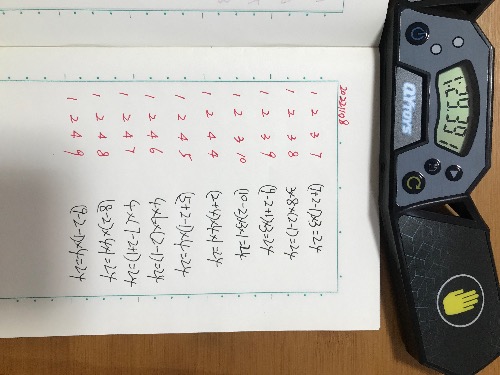 QYTOYS
20221108
1 2 3 7 (7+2-1)×3=24
1 2 3 8 3×8×(2-1)=24
1 2 3 9 (9-2+1)×3=24
1 2 3 10 (10-2)×3×1=24
1 2 4 4 (2+4)×4×1=24
1 2 4 5 (5+2-1)×4=24
1 2 4 6 4×6×(2-1)=24
1 2 4 7 4×(7-2+1)=24
1 2 4 8 (8-2)×4×1=24
1 2 4 9 (9-2-1)×4=24